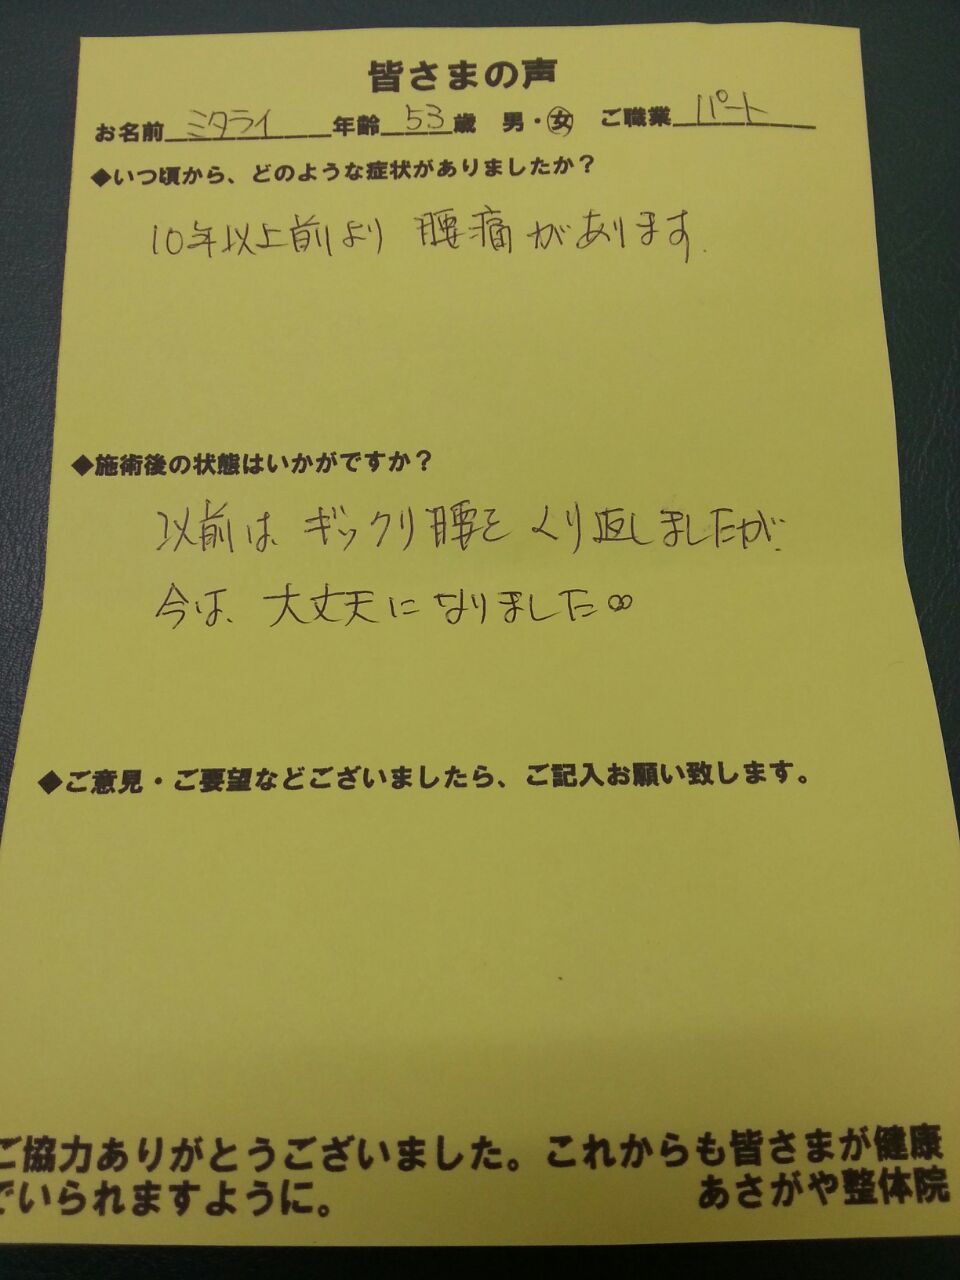 皆さまの声
お名前 ミタライ 年齢 53 歳 男・女 ご職業 パート
◆いつ頃から、どのような症状がありましたか？
10年以上前より 腰痛があります.
◆施術後の状態はいかがですか？
以前は ギックリ腰を くり返しましたが、
今は、大丈夫になりました。。
◆ご意見・ご要望などございましたら、ご記入お願い致します。
ご協力ありがとうございました。これからも皆さまが健康
でいられますように。 あさがや整体院